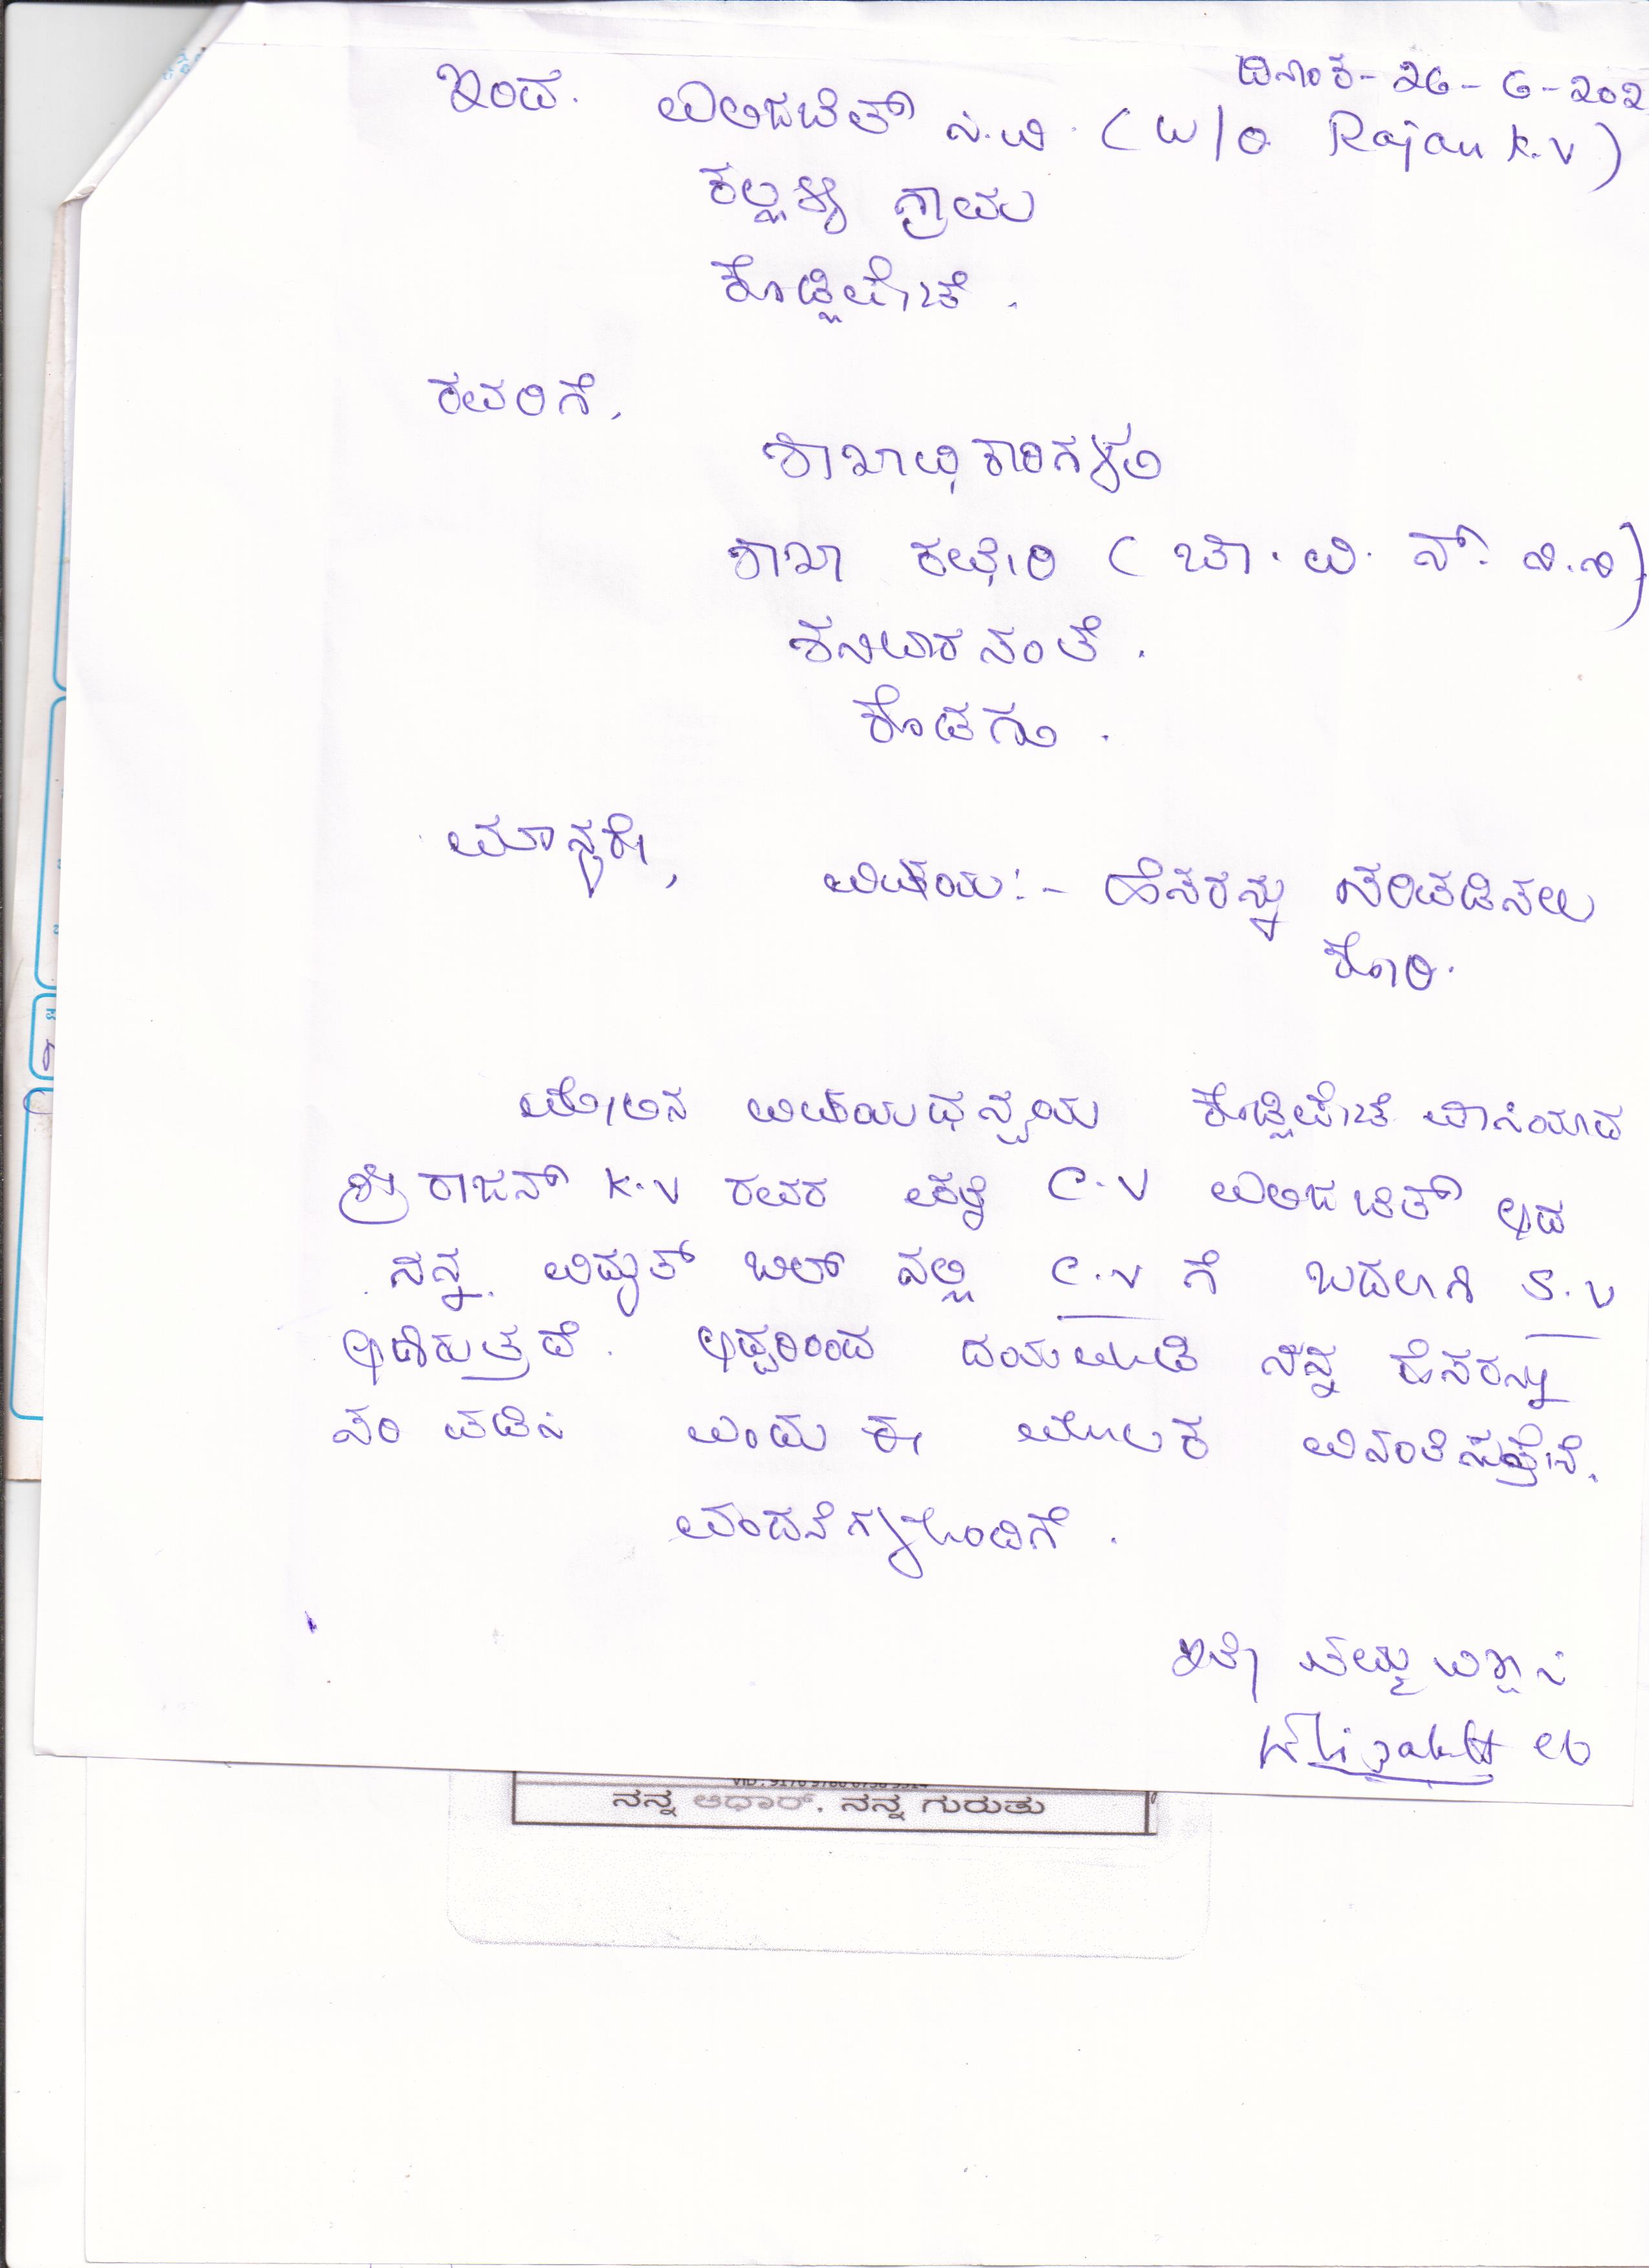 ದಿನಾಂಕ- 26-6-202
ಇಂದ. ಎಲಿಜಬೆತ್ ಸಿ.ವಿ. (W/o Rajan K.V)
ಗ್ರಾಮ
ಕೊಡ್ಲಿಪೇಟೆ.
ರವರಿಗೆ,
ಶಾಖಾಧಿಕಾರಿಗಳು
ಶಾಖಾ ಕಛೇರಿ (ಚಾ. ವಿ. ಸ್. ನಿ.ನಿ)
ಶನಿವಾರಸಂತೆ.
ಕೊಡಗು.
ಮಾನ್ಯರೇ,
ವಿಷಯ:- ಹೆಸರನ್ನು ಸರಿಪಡಿಸಲು
ಕೋರಿ.
ಮೇಲಿನ ವಿಷಯಧನ್ವಯ ಕೊಡ್ಲಿಪೇಟೆ ವಾಸಿಯಾದ
ಶ್ರೀ ರಾಜನ್ K.V ರವರ ಪತ್ನಿ C.V ಎಲಿಜಬೆತ್ ಆದ
ನನ್ನ ವಿದ್ಯುತ್ ಬಿಲ್ ನಲ್ಲಿ C.V ಗೆ ಬದಲಾಗಿ S.V
ಆಗಿರುತ್ತದೆ. ಆದ್ದರಿಂದ ದಯಮಾಡಿ ನನ್ನ ಹೆಸರನ್ನು
ಸರಿ ಪಡಿಸಿ ಎಂದು ಈ ಮೂಲಕ ವಿನಂತಿಸುತ್ತೇನೆ.
ವಂದನೆಗಳೊಂದಿಗೆ.
ಇತಿ ತಮ್ಮ ವಿಶ್ವಾಸಿ
Elizabeth CV
ನನ್ನ ಆಧಾರ್, ನನ್ನ ಗುರುತು